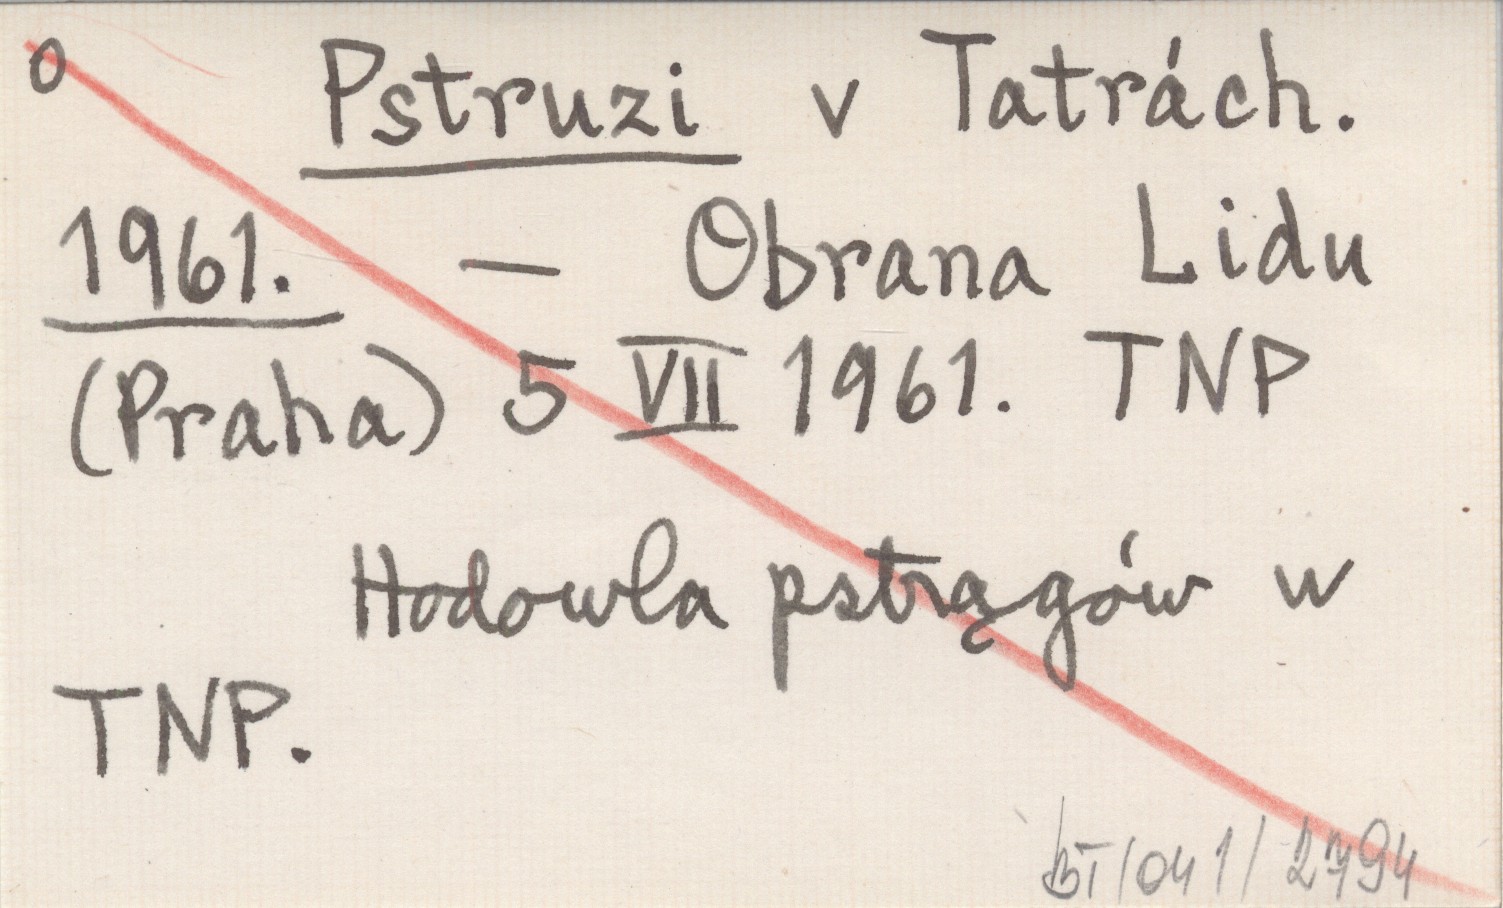 o Pstruzi v Tatrách.
1961. — Obrana Lidu
(Praha) 5 VII 1961. TNP
Hodowla pstrągów w
TNP.
BT/041/2794